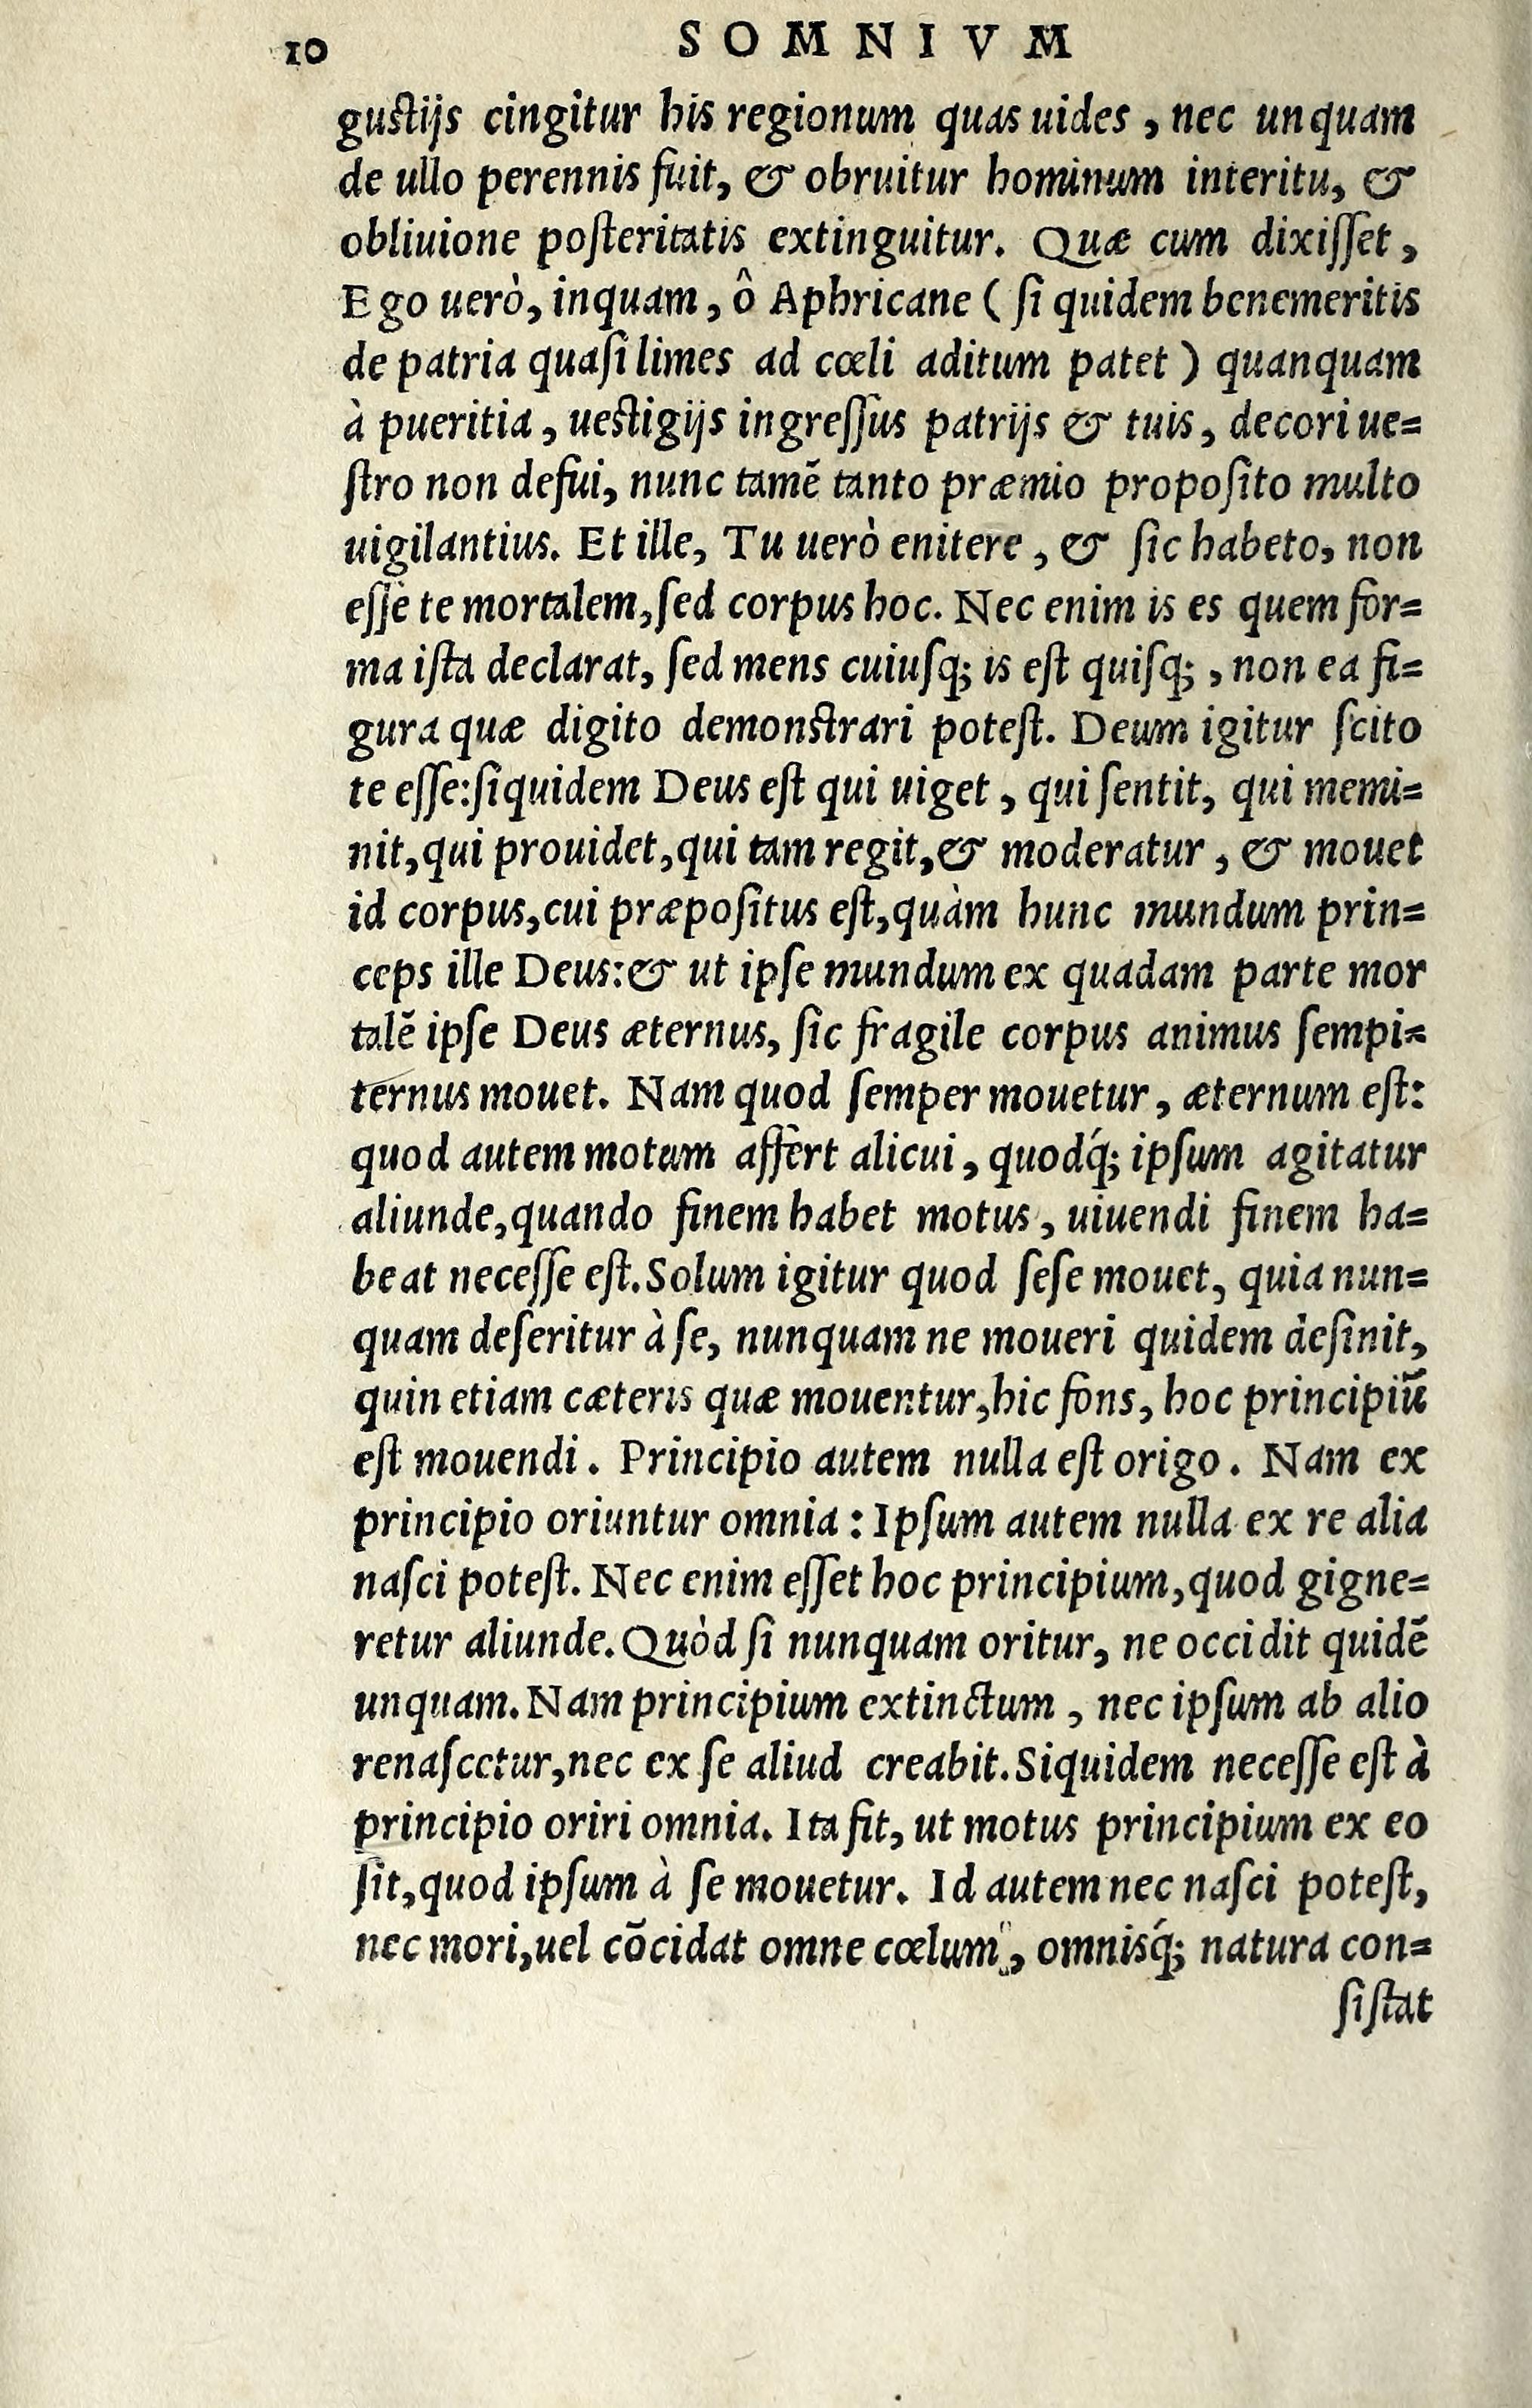 10 SOMNIVM
gustijs cingitur his regionum quas uides, nec unquam
de ullo perennis fuit, & obruitur hominum interitu, &
obliuione posteritatis extinguitur. Quæ cum dixisset,
Ego uerò, inquam, ô Aphricane (si quidem benemeritis
de patria quasi limes ad cœli aditum patet) quanquam
à pueritia, uestigijs ingressus patrijs & tuis, decori ue=
stro non defui, nunc tamē tanto præmio proposito multo
uigilantius. Et ille, Tu uerò enitere, & sic habeto, non
esse te mortalem, sed corpus hoc. Nec enim is es quem for=
ma ista declarat, sed mens cuiusq; is est quisq;, non ea fi=
gura quæ digito demonstrari potest. Deum igitur scito
te esse: siquidem Deus est qui uiget, qui sentit, qui memi=
nit, qui prouidet, qui tam regit, & moderatur, & mouet
id corpus, cui præpositus est, quàm hunc mundum prin=
ceps ille Deus: & ut ipse mundum ex quadam parte mor
talē ipse Deus æternus, sic fragile corpus animus sempi=
ternus mouet. Nam quod semper mouetur, æternum est:
quod autem motum affert alicui, quodq́; ipsum agitatur
aliunde, quando finem habet motus, uiuendi finem ha=
beat necesse est. Solum igitur quod sese mouet, quia nun=
quam deseritur à se, nunquam ne moueri quidem desinit,
quin etiam cæteris quæ mouentur, hic fons, hoc principiū
est mouendi. Principio autem nulla est origo. Nam ex
principio oriuntur omnia: Ipsum autem nulla ex re alia
nasci potest. Nec enim esset hoc principium, quod gigne=
retur aliunde. Quòd si nunquam oritur, ne occidit quidē
unquam. Nam principium extinctum, nec ipsum ab alio
renascetur, nec ex se aliud creabit. Siquidem necesse est à
principio oriri omnia. Ita fit, ut motus principium ex eo
sit, quod ipsum à se mouetur. Id autem nec nasci potest,
nec mori, uel cōcidat omne cœlum, omnisq́; natura con=
sistat